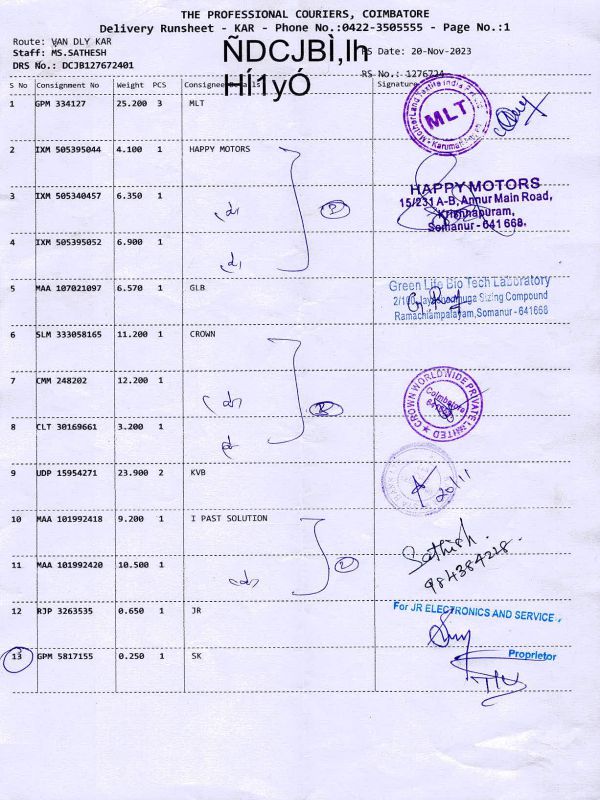 THE PROFESSIONAL COURIERS, COIMBATORE
Delivery Runsheet - KAR - Phone No.:0422-3505555 - Page No.:1
Route: VAN DLY KAR
ÑDCJBÌ,Ih
RS Date: 20-Nov-2023
Staff: MS.SATHESH
DRS No.: DCJB127672401
RS No.: 1276724
HÍ1yÓ
S No Consignment No Weight PCS Consignee Details Signature
1 GPM 334127 25.200 3 MLT
MLT
2 IXM 505395044 4.100 1 HAPPY MOTORS
3 IXM 505340457 6.350 1
HAPPY MOTORS
15/231 A-B, Annur Main Road,
Krishnapuram,
Somanur - 641 668.
4 IXM 505395052 6.900 1
5 MAA 107021097 6.570 1 GLB
Green Life Bio Tech Laboratory
Sizing Compound
Ramachiampalayam, Somanur - 641668
6 SLM 333058165 11.200 1 CROWN
7 CMM 248202 12.200 1
CROWN WORLDWIDE PRIVATE LIMITED
Coimbatore
8 CLT 30169661 3.200 1
9 UDP 15954271 23.900 2 KVB
20/11
10 MAA 101992418 9.200 1 I PAST SOLUTION
Sathish.
11 MAA 101992420 10.500 1
12 RJP 3263535 0.650 1 JR
For JR ELECTRONICS AND SERVICE,
Proprietor
13 GPM 5817155 0.250 1 SK